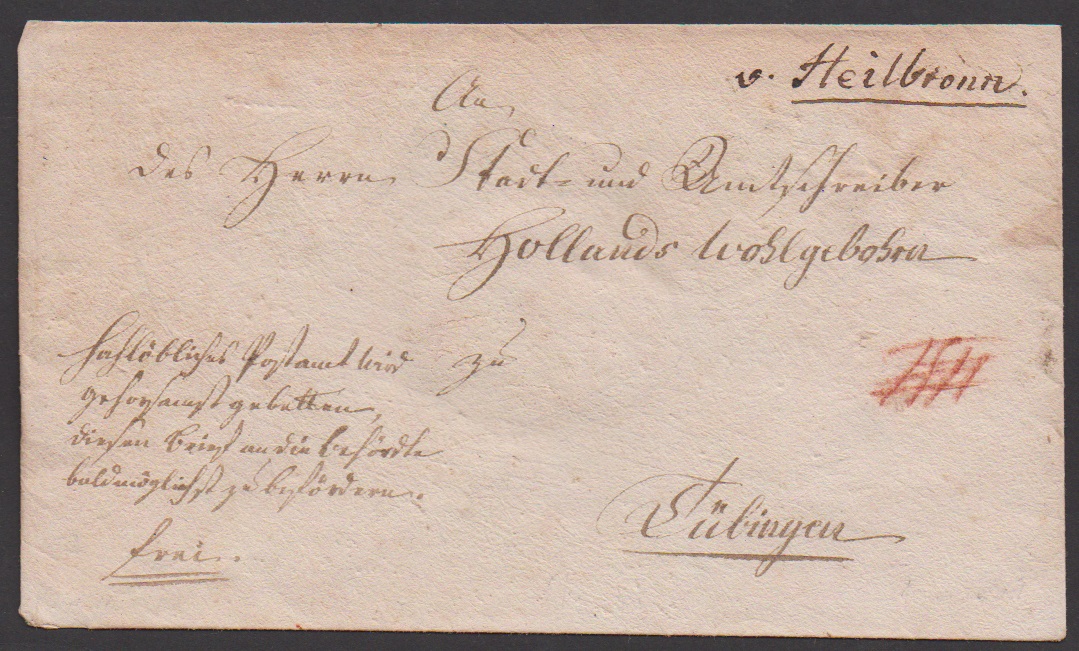 v. Heilbronn.
An
des Herrn Stadt- und Amtschreiber
Hollands Wohlgebohrn
hochlöbliches Postamt wird
gehorsamst gebetten,
diesen Brief an die Behörde
baldmöglichst zu befördern.
frei.
zu
Tübingen